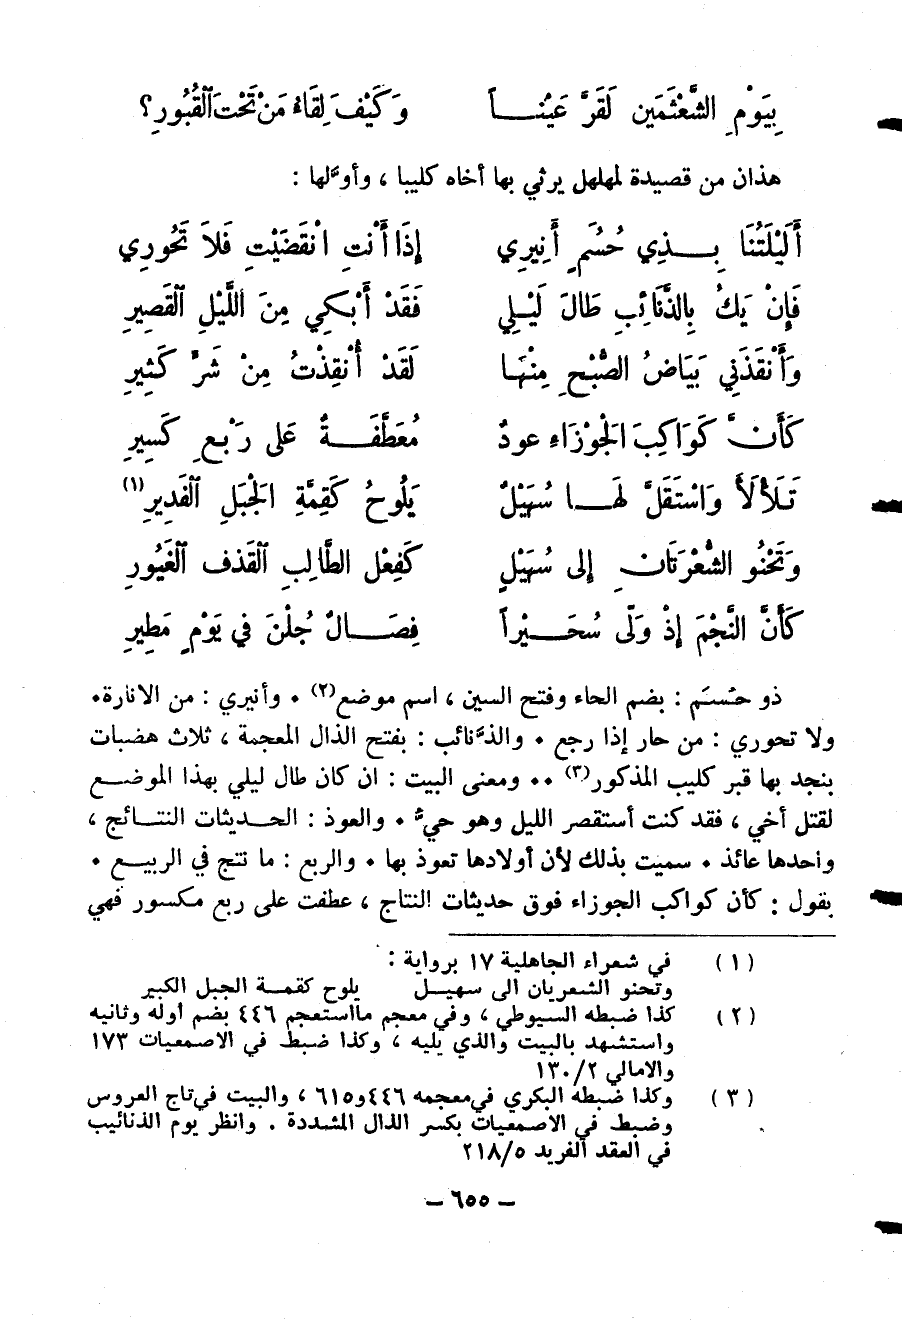 بِيَوْمِ الشَّعْثَمَيْنِ لَقَرَّ عَيْنُــــاً وَكَيْفَ لِقَاءُ مَنْ تَحْتَ الْقُبُورِ؟
هذان من قصيدة لمهلهل يرثي بها أخاه كليبا ، وأوَّلها :
أَلَيْلَتُنَا بِــــذِي حُسُمٍ أَنِيرِي إِذَا أَنْتِ انْقَضَيْتِ فَلاَ تَحُورِي
فَإِنْ يَكُ بِالذَّنَائِبِ طَالَ لَيْلِي فَقَدْ أَبْكِي مِنَ اللَّيْلِ الْقَصِيرِ
وَأَنْقَذَنِي بَيَاضُ الصُّبْحِ مِنْهَا لَقَدْ أُنْقِذْتُ مِنْ شَرٍّ كَثِيرِ
كَأَنَّ كَوَاكِبَ الجَوْزَاءِ عودٌ مُعَطَّفَــــةٌ عَلى رَبْعٍ كَسِيرِ
تَلأْلأَ وَاسْتَقَلَّ لَهَــــا سُهَيْلٌ يَلُوحُ كَقِمَّةِ الجَبَلِ الْقَدِيرِ(١)
وَتَحْنُو الشُّعْرَتَانِ إِلى سُهَيْلٍ كَفِعْلِ الطَّالِبِ الْقَذفِ الْغَيُورِ
كَأَنَّ النَّجْمَ إِذْ وَلَّى سُحَــــيْراً فِصَــــالٌ جُلْنَ فِي يَوْمٍ مَطِيرِ
ذو حُسَم : بضم الحاء وفتح السين ، اسم موضع(٢) . وأنيري : من الانارة.
ولا تحوري : من حار إذا رجع . والذَّنائب : بفتح الذال المعجمة ، ثلاث هضبات
بنجد بها قبر كليب المذكور(٣) .. ومعنى البيت : ان كان طال ليلي بهذا الموضــع
لقتل أخي ، فقد كنت أستقصر الليل وهو حيّ . والعوذ : الحــديثات النتــائج ،
واحدها عائذ . سميت بذلك لأن أولادها تعوذ بها . والربع : ما نتج في الربيــع .
يقول : كأن كواكب الجوزاء فوق حديثات النتاج ، عطفت على ربع مكسور فهي
(١) في شعراء الجاهلية ١٧ برواية :
وتحنو الشعريان الى سهيــل يلوح كقمــة الجبل الكبير
(٢) كذا ضبطه السيوطي ، وفي معجم مااستعجم ٤٤٦ بضم أوله وثانيه
واستشهد بالبيت والذي يليه ، وكذا ضبط في الاصمعيات ١٧٣
والامالي ١٣٠/٢
(٣) وكذا ضبطه البكري في معجمه ٤٤٦ و٦١٥ ، والبيت في تاج العروس
وضبط في الاصمعيات بكسر الذال المشددة . وانظر يوم الذنائيب
في العقد الفريد ٢١٨/٥
– ٦٥٥ –